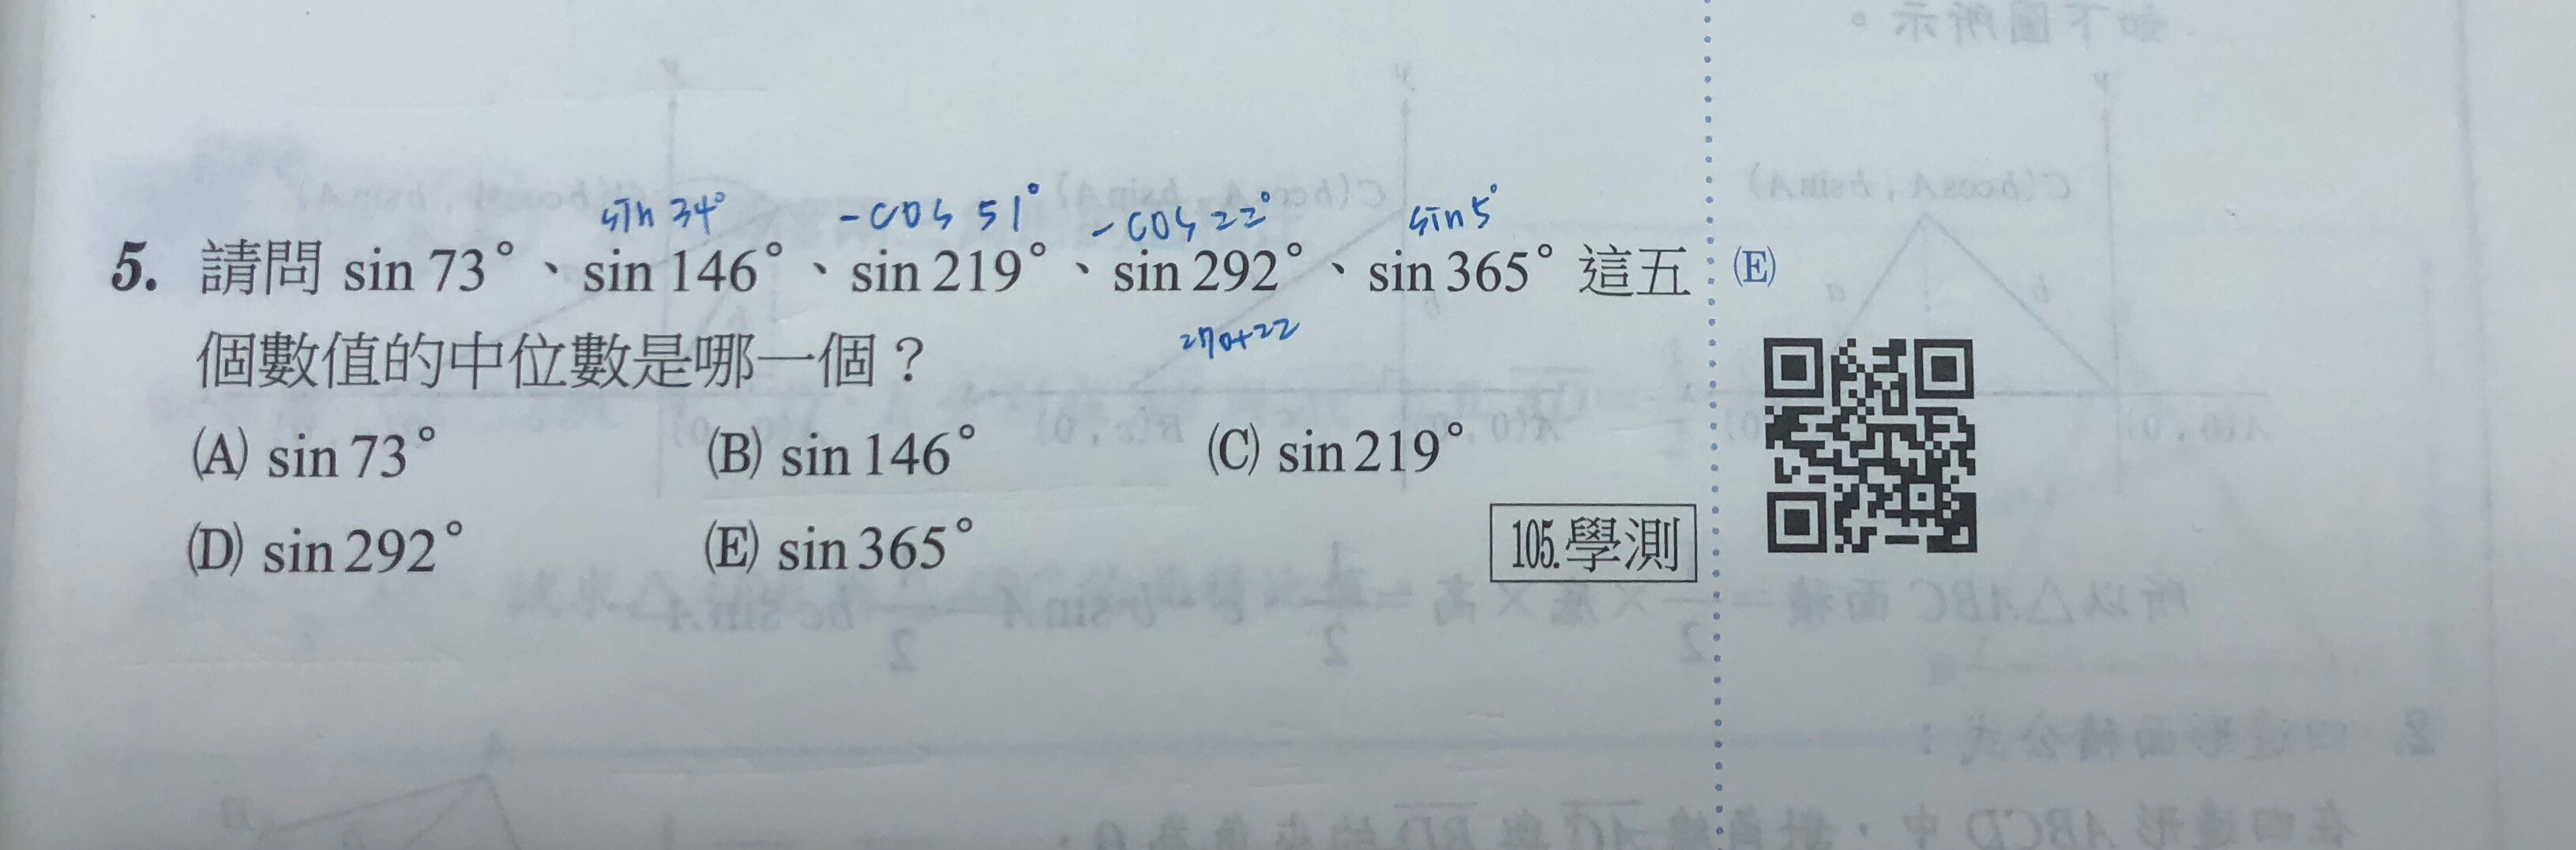 如下圖所示。
sin 34° -cos 51° -cos 22° sin 5°
5. 請問 sin 73°、sin 146°、sin 219°、sin 292°、sin 365° 這五 (E)
270+22
個數值的中位數是哪一個？
(A) sin 73° (B) sin 146° (C) sin 219°
(D) sin 292° (E) sin 365° 105.學測